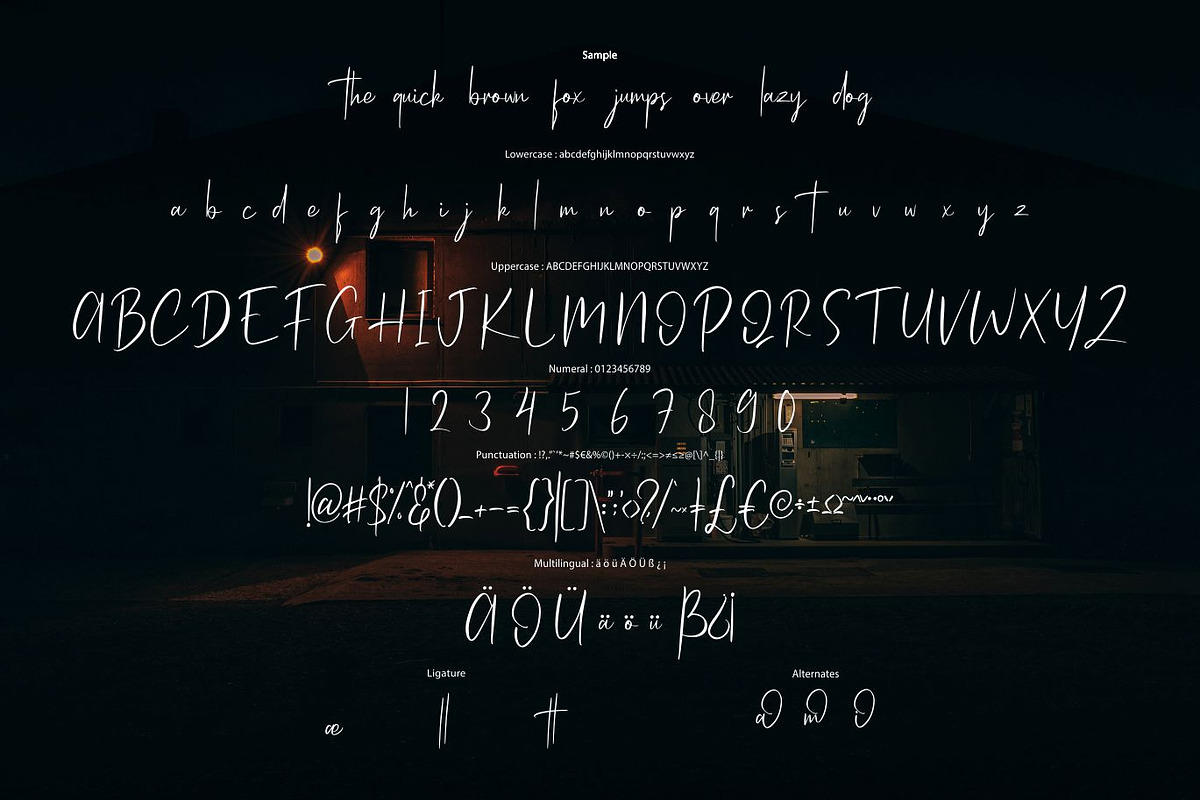 Sample
the quick brown fox jumps over lazy dog
Lowercase : abcdefghijklmnopqrstuvwxyz
a b c d e f g h i j k l m n o p q r s t u v w x y z
Uppercase : ABCDEFGHIJKLMNOPQRSTUVWXYZ
A B C D E F G H I J K L M N O P Q R S T U V W X Y Z
Numeral : 0123456789
1 2 3 4 5 6 7 8 9 0
Punctuation : !?,."`'*~#$€&%©()+-×÷/:;<=>≠≤≥@[\]^_{|}
!@#$%^&*()_+-={}|[]\:";'<>?,/
Multilingual : ä ö ü Ä Ö Ü ß ¿ ¡
Ä Ö Ü ä ö ü ß¿¡
Ligature Alternates
æ ll tt a m o